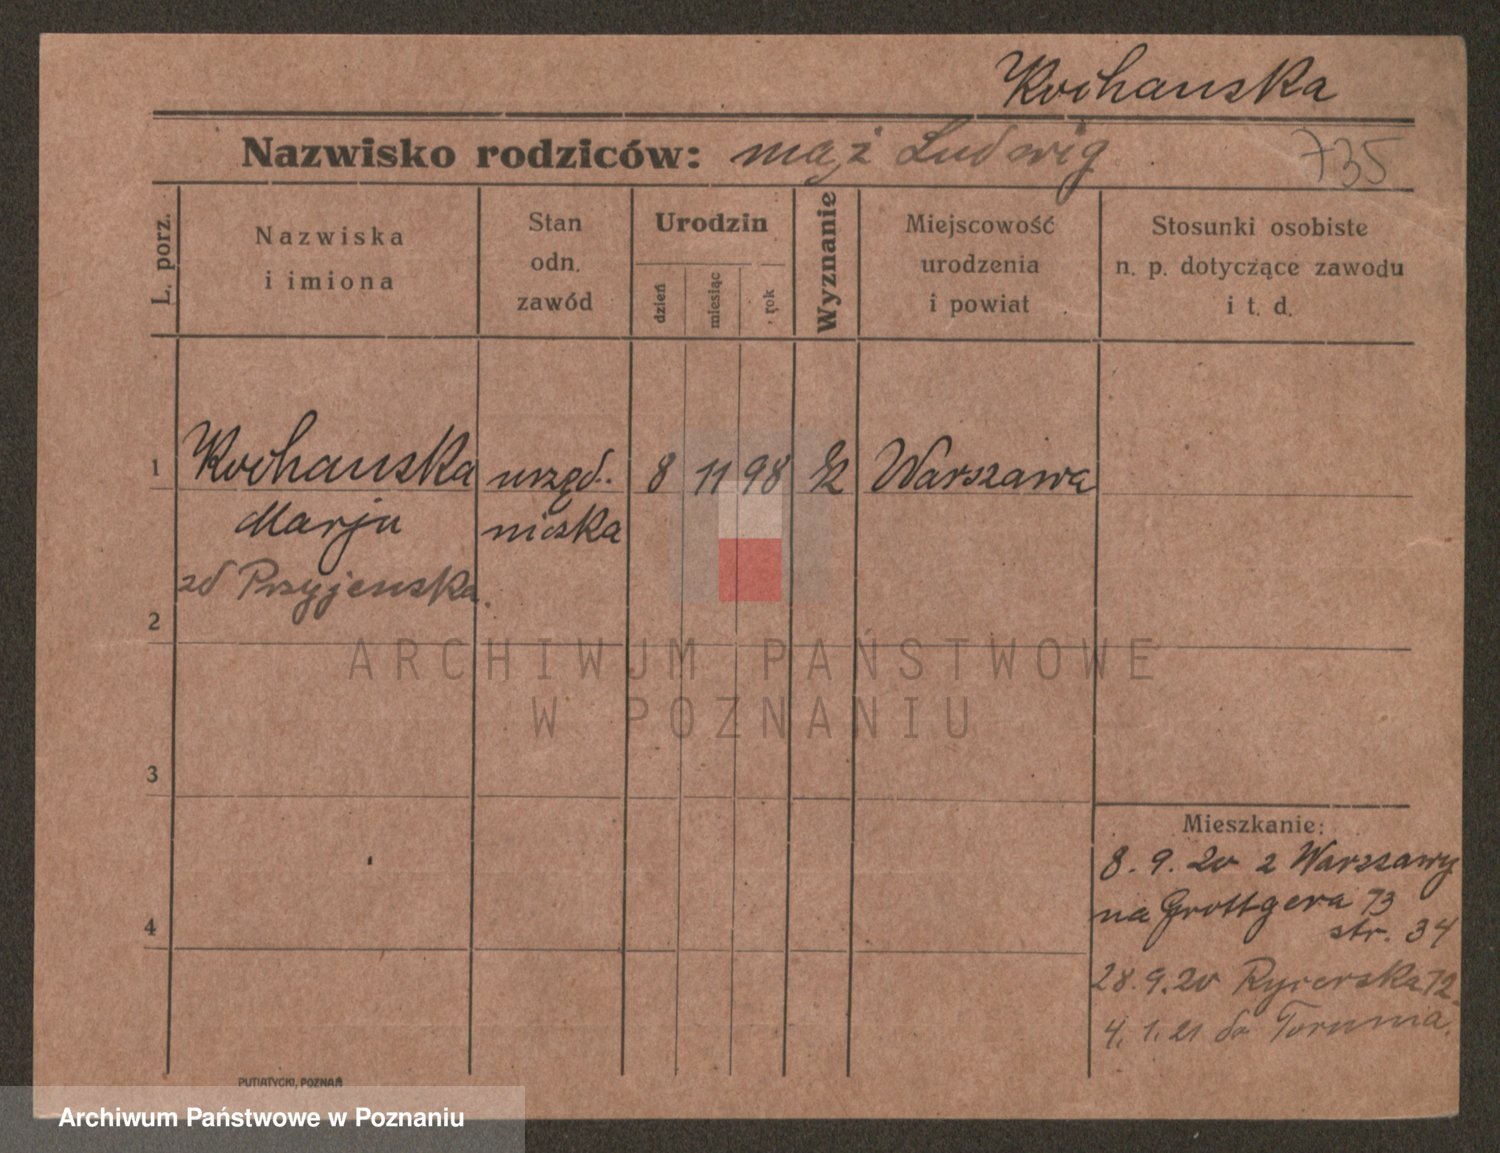 Kochanska
Nazwisko rodziców: mąż Ludwig
735
L. porz.
Nazwiska
i imiona
Stan
odn.
zawód
Urodzin
dzień
miesiąc
rok
Wyznanie
Miejscowość
urodzenia
i powiat
Stosunki osobiste
n. p. dotyczące zawodu
i t. d.
1 Kochanska urzęd. 8 11 98 Warszawa
Marja niczka
zd Przyjemska.
2
ARCHIWUM PAŃSTWOWE
W POZNANIU
3
Mieszkanie:
8. 9. 20 z Warszawy
na Grottgera 73
str. 34
4
28. 9. 20 Rycerska 72.
4. 1. 21 do Torunia.
PUTIATYCKI, POZNAŃ
Archiwum Państwowe w Poznaniu